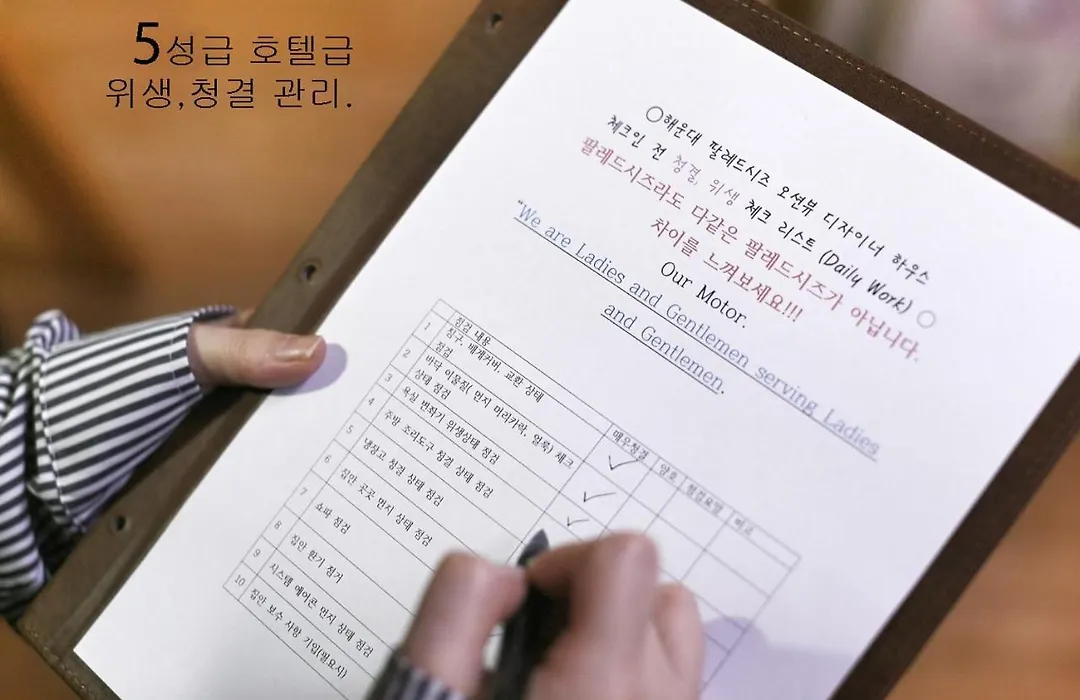 5성급 호텔급
위생,청결 관리.
○해운대 팔레드시즈 오션뷰 디자이너 하우스
체크인 전 청결, 위생 체크 리스트 (Daily Work) ○
팔레드시즈라도 다같은 팔레드시즈가 아닙니다.
차이를 느껴보세요!!!
Our Motor.
"We are Ladies and Gentlemen serving Ladies
and Gentlemen.
점검 내용 매우청결 양호 점검요망 비고
1 침구, 베개커버, 교환 상태
점검
2 바닥 이물질( 먼지 머리카락, 얼룩) 체크
상태 점검
3 욕실 변좌기 위생상태 점검
4 주방 조리도구 청결 상태 점검
5 냉장고 청결 상태 점검
6 집안 곳곳 먼지 상태 점검
7 쇼파 점검
8 집안 환기 점거
9 시스템 에어콘 먼지 상태 점검
10 집안 보수 사항 기입(필요시)